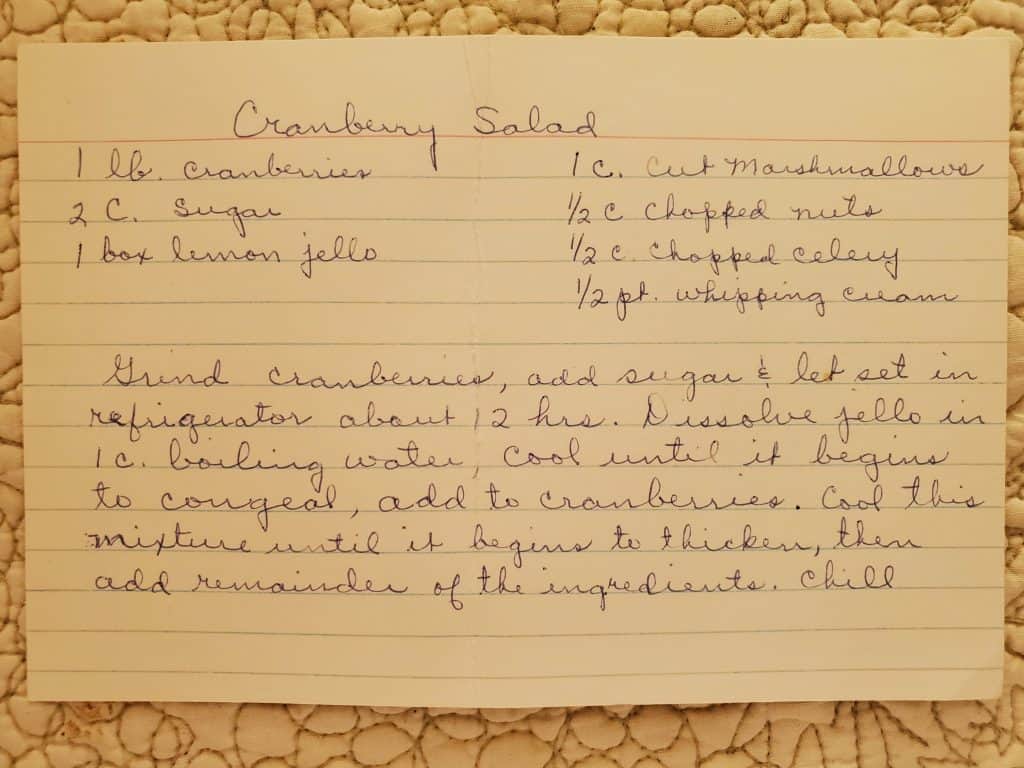 Cranberry Salad
1 lb. cranberries
2 C. Sugar
1 box lemon jello
1 c. Cut Marshmallows
1/2 c chopped nuts
1/2 c. chopped celery
1/2 pt. whipping cream
Grind cranberries, add sugar & let set in
refrigerator about 12 hrs. Dissolve jello in
1 c. boiling water, cool until it begins
to congeal, add to cranberries. Cool this
mixture until it begins to thicken, then
add remainder of the ingredients. Chill